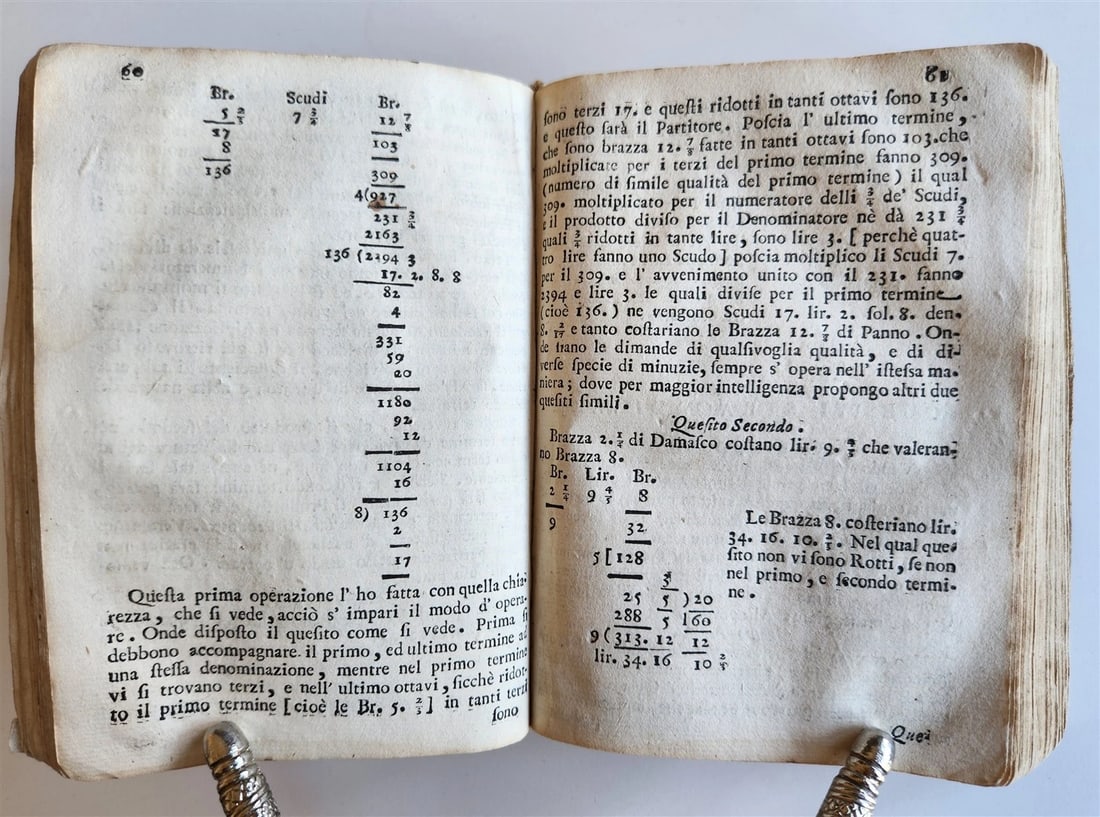 60
Br. Scudi Br.
5 2/3 7 3/4 12 7/8
17 103
8
136
309
4(927
231 3/4
2163
136 (2394 3
17. 2. 8. 8
82
4
331
59
20
1180
92
12
1104
16
8) 136
2
17
Queſta prima operazione l' ho fatta con quella chia-
rezza, che ſi vede, acciò s' impari il modo d' opera-
re. Onde diſpoſto il queſito come ſi vede. Prima ſi
debbono accompagnare il primo, ed ultimo termine ad
una ſteſſa denominazione, mentre nel primo termine
vi ſi trovano terzi, e nell' ultimo ottavi, ſicchè ridot-
to il primo termine [cioè le Br. 5. 2/3] in tanti terzi
ſono
61
ſono terzi 17. e queſti ridotti in tanti ottavi ſono 136.
e queſto ſarà il Partitore. Poſcia l' ultimo termine,
che ſono brazza 12. 7/8 fatte in tanti ottavi ſono 103. che
moltiplicate per i terzi del primo termine fanno 309.
(numero di ſimile qualità del primo termine) il qual
309. moltiplicato per il numeratore delli 3/4 de' Scudi,
e il prodotto diviſo per il Denominatore nè dà 231 3/4
quali 3/4 ridotti in tante lire, ſono lire 3. [ perchè quat-
tro lire fanno uno Scudo ] poſcia moltiplico li Scudi 7.
per il 309. e l' avvenimento unito con il 231. fanno
2394 e lire 3. le quali diviſe per il primo termine
(cioè 136.) ne vengono Scudi 17. lir. 2. ſol. 8. den.
8. 2/17 e tanto coſtariano le Brazza 12. 7/8 di Panno. On-
de ſiano le dimande di qualſivoglia qualità, e di di-
verſe ſpecie di minuzie, ſempre s' opera nell' iſteſſa ma-
niera; dove per maggior intelligenza propongo altri due
queſiti ſimili.
Queſito Secondo.
Brazza 2. 1/4 di Damaſco coſtano lir. 9. 4/5 che valeran-
no Brazza 8.
Br. Lir. Br.
2 1/4 9 4/5 8
9 32
5[128
3/
25 5 )20
288 5 |60
9(313. 12 12
lir. 34. 16 10 2/3
Le Brazza 8. coſteriano lir.
34. 16. 10. 2/3. Nel qual que-
ſito non vi ſono Rotti, ſe non
nel primo, e ſecondo termi-
ne.
Que-